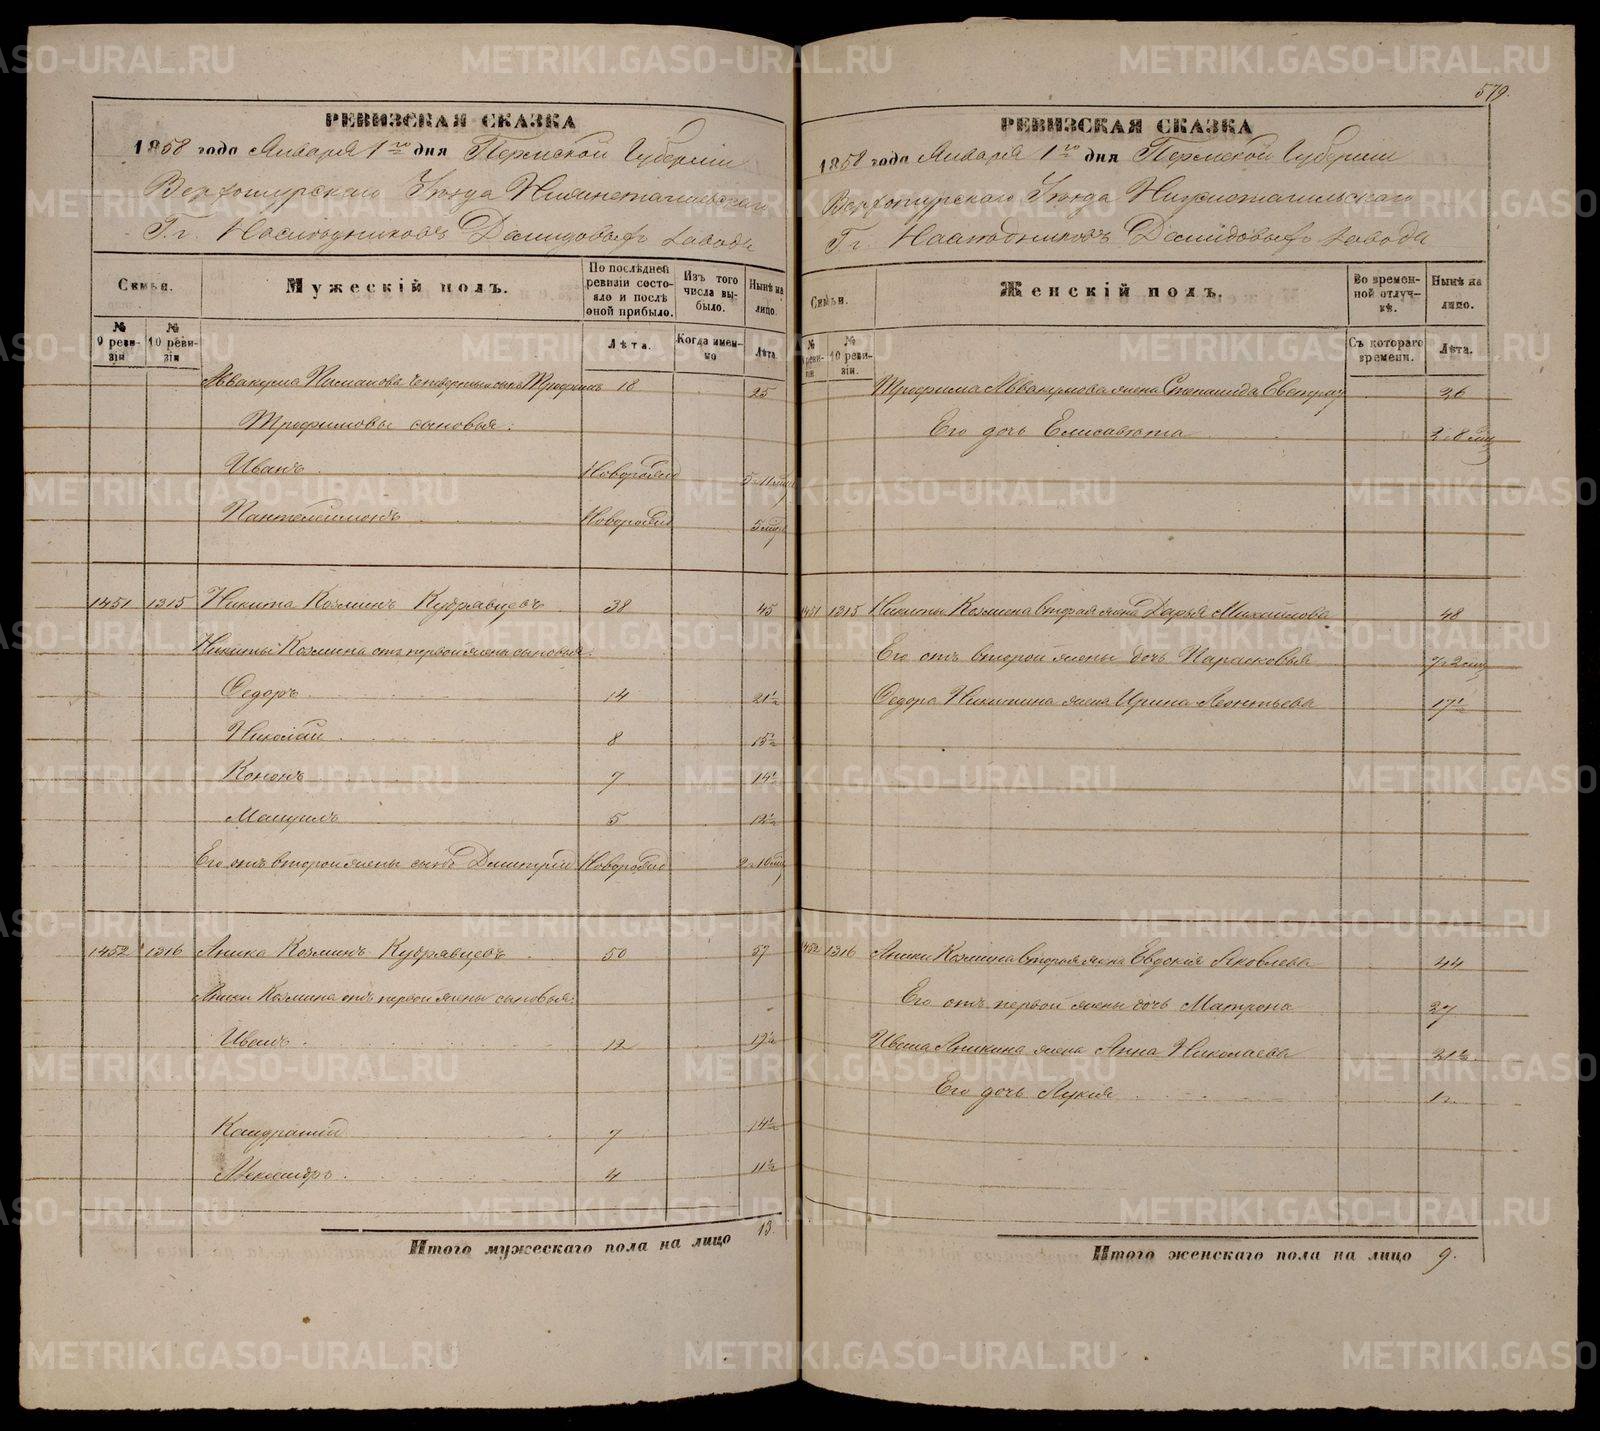 РЕВИЗСКАЯ СКАЗКА
1858 года Января 1го дня Пермской Губернии
Верхотурскаго Уѣзда Нижнетагильскаго
Г.г. Наслѣдниковъ Демидовыхъ завода
Семьи.
Мужескій полъ.
По послѣдней ревизіи состояло и послѣ оной прибыло.
Изъ того числа выбыло.
Нынѣ на лицо.
№ 9 ревизіи
№ 10 ревизіи
Лѣта.
Когда именно
Лѣта.
Аввакума четвертый сынъ Трофимъ 18 25
Трофимовы сыновья:
Иванъ Новорожд 5 11 мѣс
Пантелеймонъ Новорожд 5 мѣс
1451 1315 Никита Козминъ Кудрявцовъ 38 45
Никиты Козмина отъ первой жены сыновья:
Федоръ 14 21½
Николай 8 15½
Кононъ 7 14½
Мануилъ 5 12½
Его отъ второй жены сынъ Димитрій Новорожд 2 10 мѣс
1452 1316 Аника Козминъ Кудрявцовъ 50 57
Аники Козмина отъ первой жены сыновья:
Иванъ 12 19½
Кондратій 7 14½
Александръ 4 11½
Итого мужескаго пола на лицо 13.
579.
РЕВИЗСКАЯ СКАЗКА
1858 года Января 1го дня Пермской Губернии
Верхотурскаго Уѣзда Нижнетагильскаго
Г.г. Наслѣдниковъ Демидовыхъ завода
Семьи.
Женскій полъ.
Во временной отлучкѣ.
Нынѣ на лицо.
№ ревизіи
№ 10 ревизіи.
Съ котораго времени.
Лѣта.
Трофима Аввакумова жена Степанида 26
Его дочь Елисавета 2 8 мѣс
1451 1315 Никиты Козмина вторая жена Дарья Михайлова 48
Его отъ второй жены дочь Парасковья 7 2 мѣс
Федора Никитина жена Ирина Леонтьева 17½
1452 1316 Аники Козмина вторая жена Евдокія Яковлева 44
Его отъ первой жены дочь Матрона 27
Ивана Аникина жена Анна Николаева 21½
Его дочь Лукія 1
Итого женскаго пола на лицо 9.
METRIKI.GASO-URAL.RU